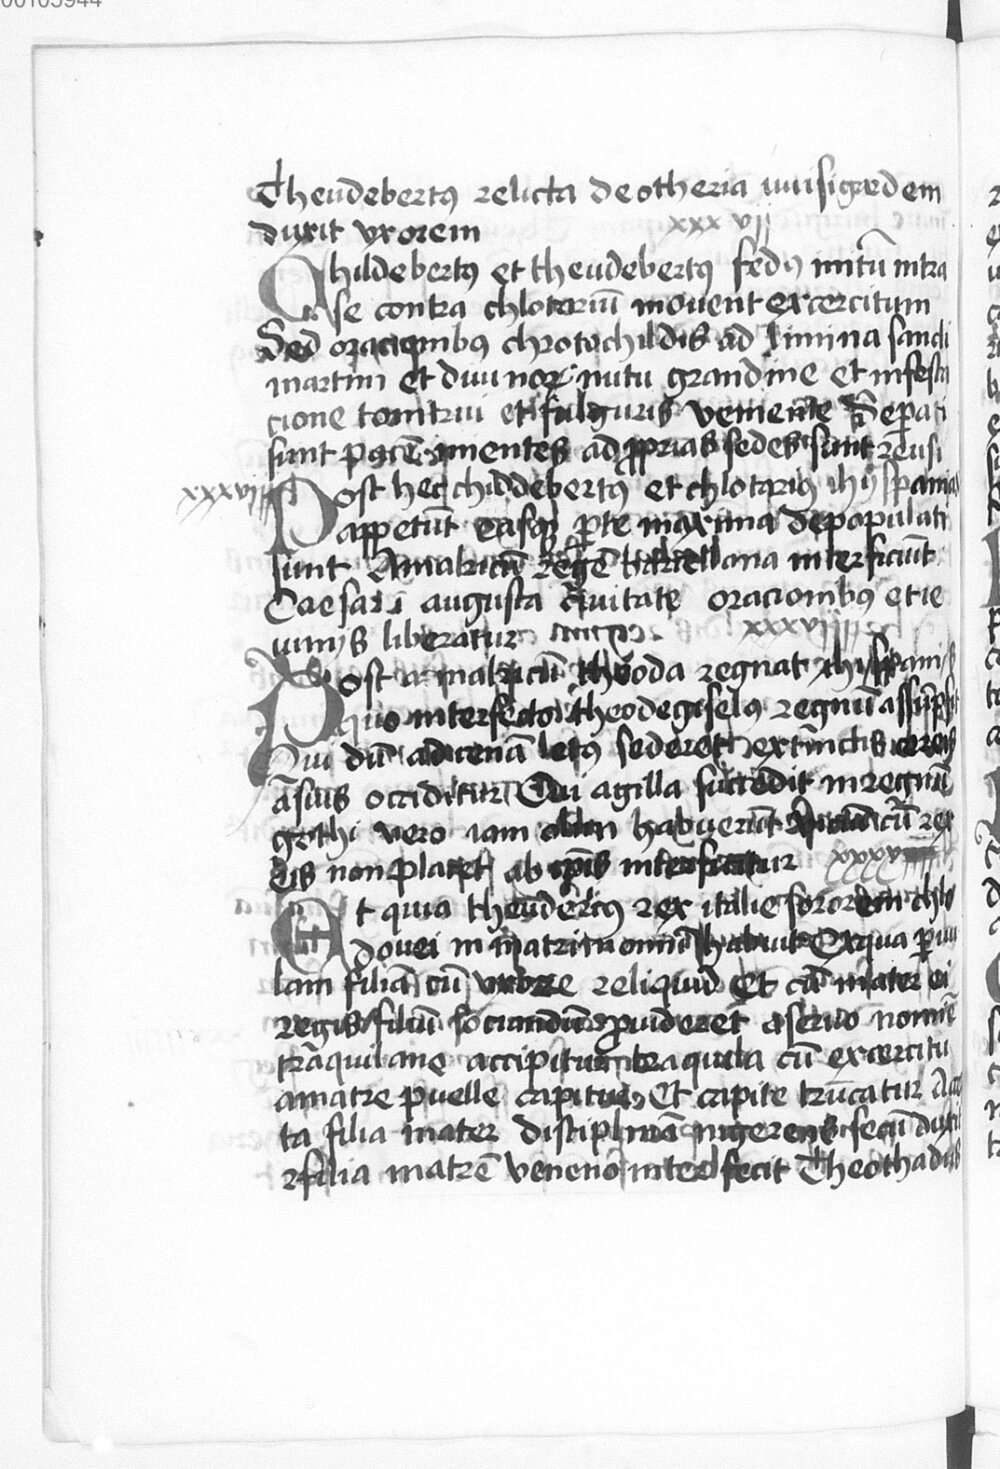 00103944
Theudebertꝯ relicta deotheria wisigardem
duxit vxorem xxxvij
Childebertꝯ et theudebertꝯ fedꝯ initū intra
se contra chlotariū mouent excercitum
Sed oracionibꝯ chrotochildis ad limina sancti
martini et diuinoꝝ nutu grandine et infesta
cione tonitrui et fulguris vemente sepati
sunt pacē ementes ad pprias sedes sunt reūsi
xxxviij Post hec childebertꝯ et chlotariꝯ ihyspanias
appetūt easqꝫ pte maxima depopulati
sunt Amalricū regē interficiūt
Caesari augusta ciuitate oracionibꝯ et ie
iunijs liberatur xxxviiij
Post amalricū theoda regnat ihyspanijs
quo interfecto theodegiselꝯ regnū assūpsit
Qui dū ad cenā letꝯ sederet extinctis cereis
a suis occiditur Cui agilla succedit in regnū
gothi vero iam olim habuerūt cū rex
eis non placet ab ipis interficitur
Et quia theudericꝯ rex italie sororem chlo
douei in matrimoniū habuit Ex qua puu
lam filiā cū vxore reliquid Et cū mater ei
regis filiū sociandū puideret a seruo nomīe
trāquilane accipitur traquila cū excercitu
a matre puelle capitur Et capite trūcatur Acce
ta filia mater disciplinā ingerens secū duxit
filia matrē veneno interfecit Theothadus